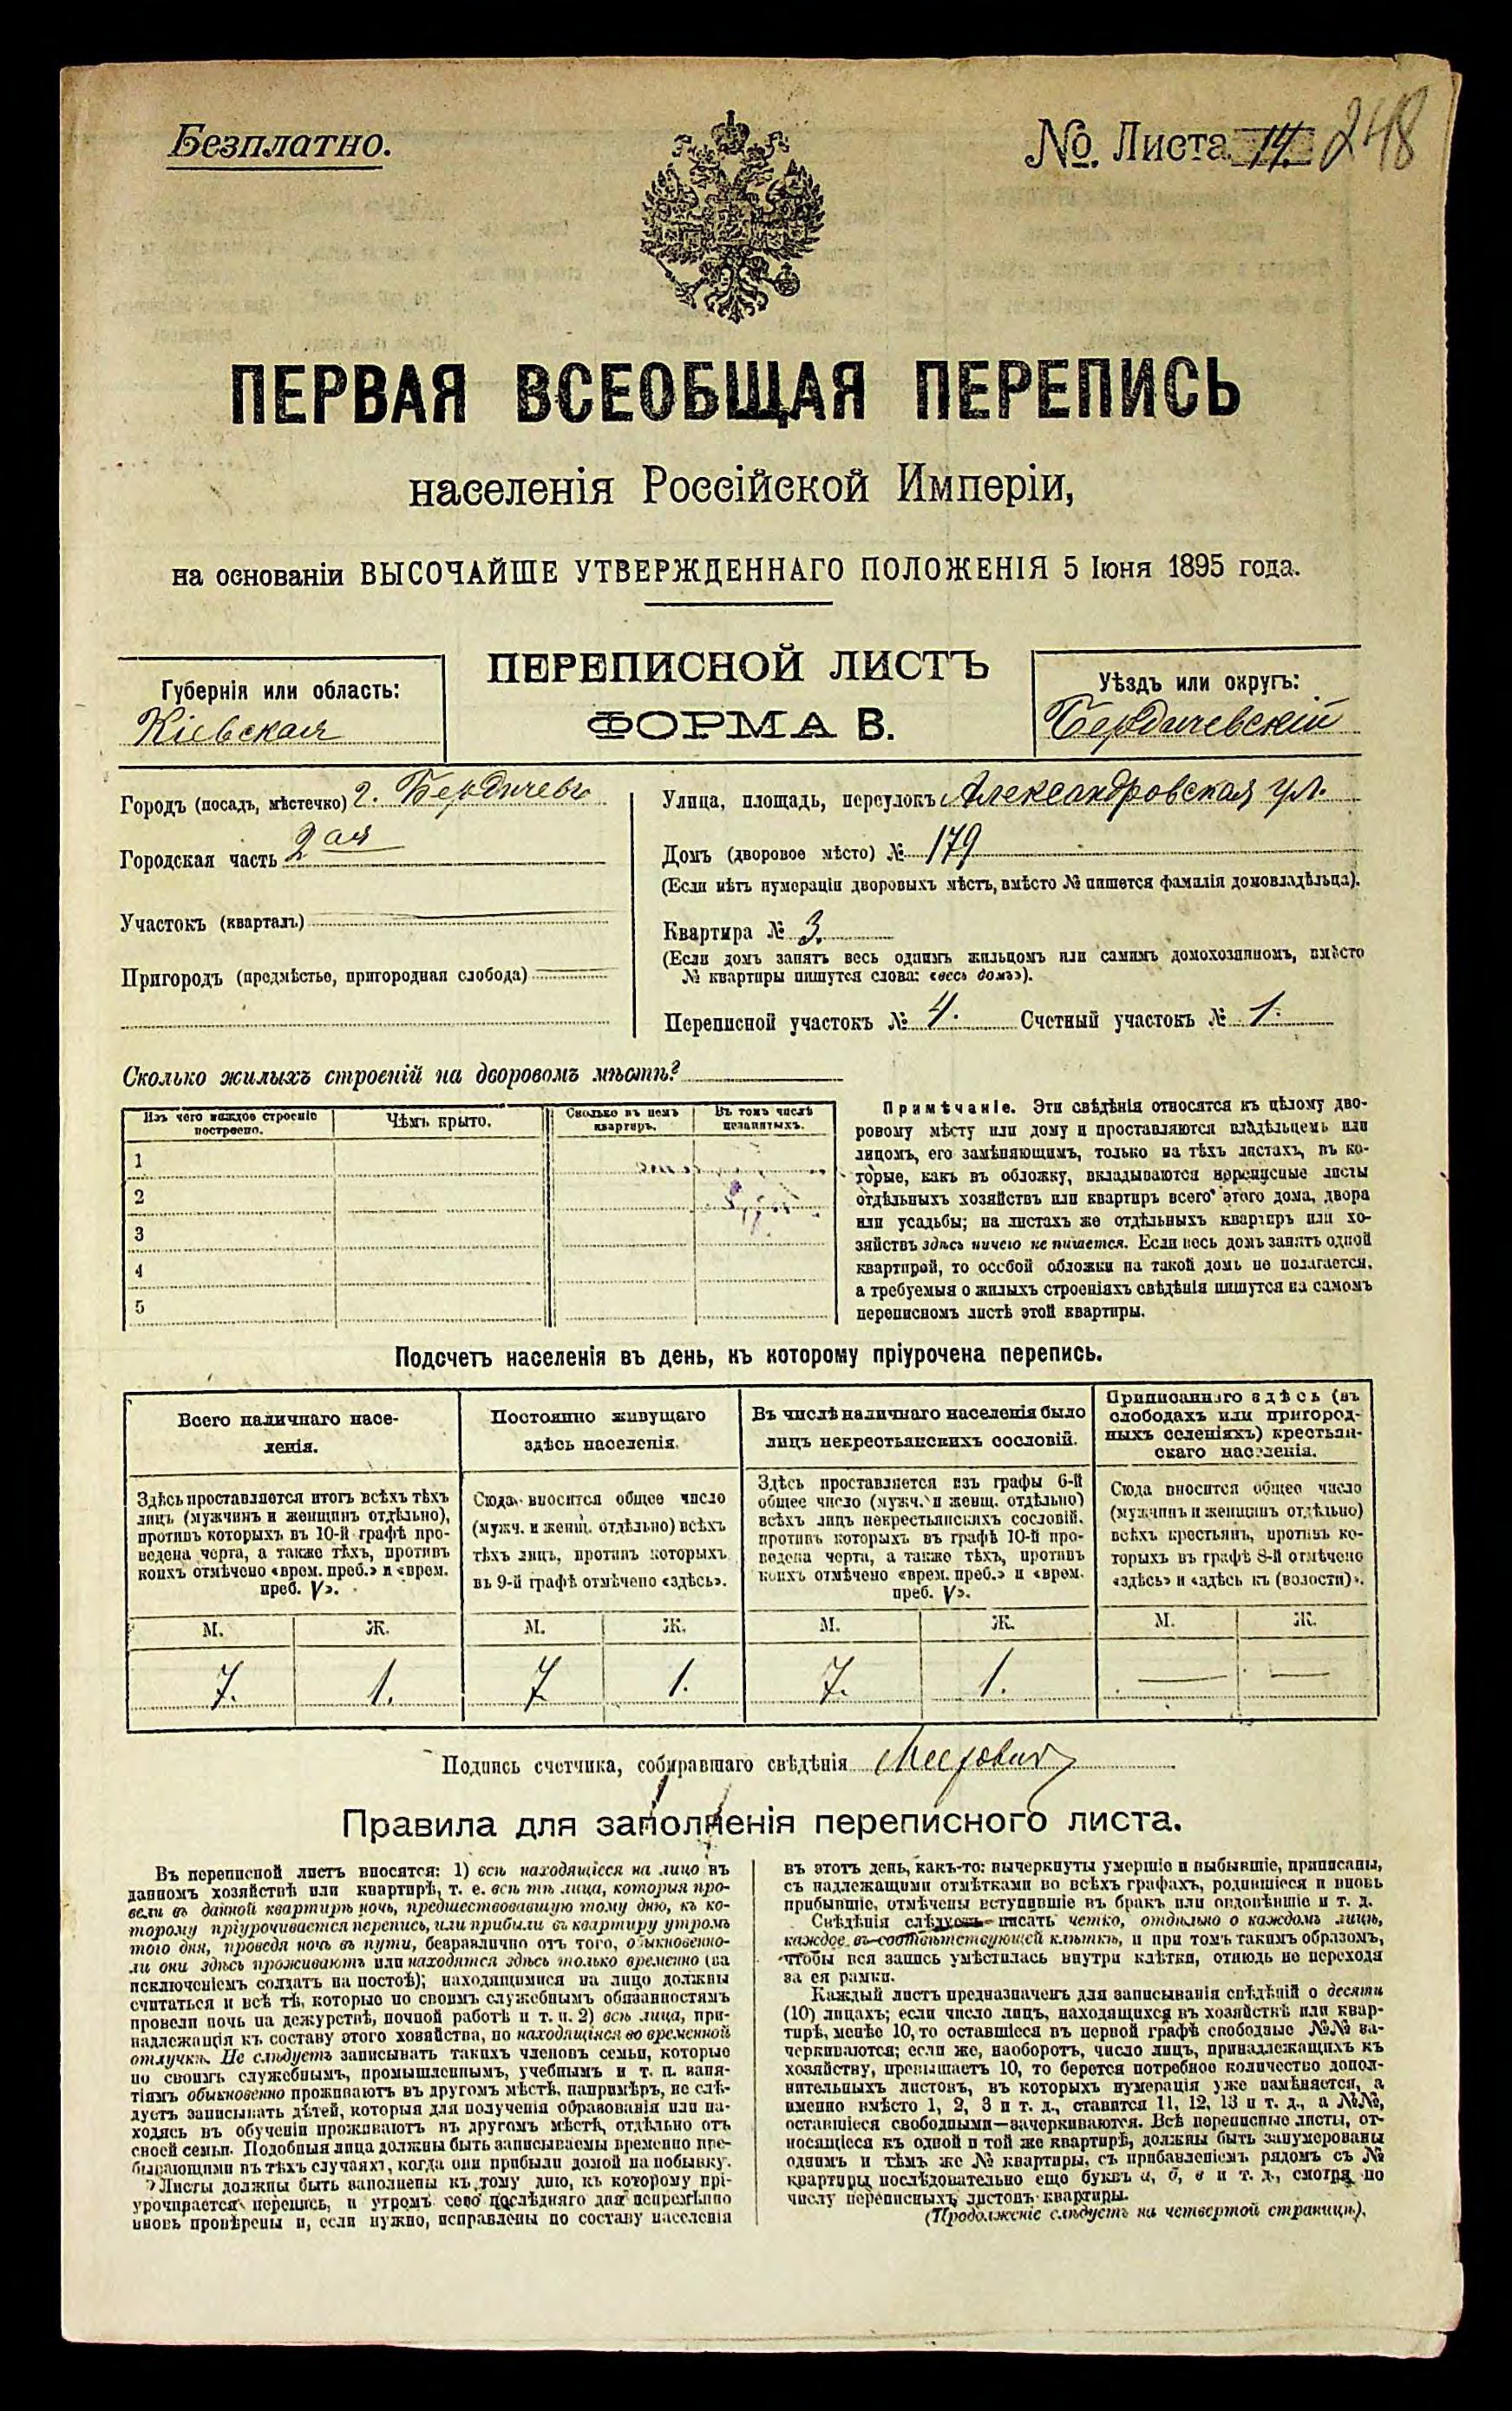 Безплатно.
№. Листа 14. 248
ПЕРВАЯ ВСЕОБЩАЯ ПЕРЕПИСЬ
населенія Россійской Имперіи,
на основаніи ВЫСОЧАЙШЕ УТВЕРЖДЕННАГО ПОЛОЖЕНІЯ 5 Іюня 1895 года.
ПЕРЕПИСНОЙ ЛИСТЪ
ФОРМА В.
Губернія или область:
Кіевская
Уѣздъ или округъ:
Бердичевскій
Городъ (посадъ, мѣстечко) г. Бердичевъ
Городская часть 2ая
Участокъ (кварталъ)
Пригородъ (предмѣстье, пригородная слобода)
Улица, площадь, переулокъ Александровская ул.
Домъ (дворовое мѣсто) № 179
(Если нѣтъ нумераціи дворовыхъ мѣстъ, вмѣсто № пишется фамилія домовладѣльца).
Квартира № 3.
(Если домъ занятъ весь однимъ жильцомъ или самимъ домохозяиномъ, вмѣсто
№ квартиры пишутся слова: «весь домъ»).
Переписной участокъ № 4. Счетный участокъ № 1.
Сколько жилыхъ строеній на дворовомъ мѣстѣ?
Изъ чего каждое строеніе
построено.
Чѣмъ крыто.
Сколько въ немъ
квартиръ.
Въ томъ числѣ
незанятыхъ.
1
2
3
4
5
Примѣчаніе. Эти свѣдѣнія относятся къ цѣлому дво-
ровому мѣсту или дому и проставляются владѣльцемъ или
лицомъ, его замѣняющимъ, только на тѣхъ листахъ, въ ко-
торые, какъ въ обложку, вкладываются переписные листы
отдѣльныхъ хозяйствъ или квартиръ всего этого дома, двора
или усадьбы; на листахъ же отдѣльныхъ квартиръ или хо-
зяйствъ здѣсь ничего не пишется. Если весь домъ занятъ одной
квартирой, то особой обложки на такой домъ не полагается,
а требуемыя о жилыхъ строеніяхъ свѣдѣнія пишутся на самомъ
переписномъ листѣ этой квартиры.
Подсчетъ населенія въ день, къ которому пріурочена перепись.
Всего наличнаго насе-
ленія.
Здѣсь проставляется итогъ всѣхъ тѣхъ
лицъ (мужчинъ и женщинъ отдѣльно),
противъ которыхъ въ 10-й графѣ про-
ведена черта, а также тѣхъ, противъ
коихъ отмѣчено «врем. преб.» и «врем.
преб. V».
М. Ж.
7. 1.
Постоянно живущаго
здѣсь населенія.
Сюда вносится общее число
(мужч. и женщ. отдѣльно) всѣхъ
тѣхъ лицъ, противъ которыхъ
въ 9-й графѣ отмѣчено «здѣсь».
М. Ж.
7 1.
Въ числѣ наличнаго населенія было
лицъ некрестьянскихъ сословій.
Здѣсь проставляется изъ графы 6-й
общее число (мужч. и женщ. отдѣльно)
всѣхъ лицъ некрестьянскихъ сословій,
противъ которыхъ въ графѣ 10-й про-
ведена черта, а также тѣхъ, противъ
коихъ отмѣчено «врем. преб.» и «врем.
преб. V».
М. Ж.
7. 1.
Приписаннаго здѣсь (въ
слободахъ или пригород-
ныхъ селеніяхъ) крестьян-
скаго населенія.
Сюда вносится общее число
(мужчинъ и женщинъ отдѣльно)
всѣхъ крестьянъ, противъ ко-
торыхъ въ графѣ 8-й отмѣчено
«здѣсь» и «здѣсь къ (волости)».
М. Ж.
— —
Подпись счетчика, собиравшаго свѣдѣнія
Правила для заполненія переписного листа.
Въ переписной листъ вносятся: 1) всѣ находящіеся на лицо въ
данномъ хозяйствѣ или квартирѣ, т. е. всѣ тѣ лица, которыя про-
вели въ данной квартирѣ ночь, предшествовавшую тому дню, къ ко-
торому пріурочивается перепись, или прибыли въ квартиру утромъ
того дня, проведя ночь въ пути, безразлично отъ того, обыкновенно-
ли они здѣсь проживаютъ или находятся здѣсь только временно (за
исключеніемъ солдатъ на постоѣ); находящимися на лицо должны
считаться и всѣ тѣ, которые по своимъ служебнымъ обязанностямъ
провели ночь на дежурствѣ, ночной работѣ и т. п. 2) всѣ лица, при-
надлежащія къ составу этого хозяйства, но находящіяся во временной
отлучкѣ. Не слѣдуетъ записывать такихъ членовъ семьи, которые
по своимъ служебнымъ, промышленнымъ, учебнымъ и т. п. заня-
тіямъ обыкновенно проживаютъ въ другомъ мѣстѣ, напримѣръ, не слѣ-
дуетъ записывать дѣтей, которыя для полученія образованія или на-
ходясь въ обученіи проживаютъ въ другомъ мѣстѣ, отдѣльно отъ
своей семьи. Подобныя лица должны быть записываемы временно пре-
бывающими въ тѣхъ случаяхъ, когда они прибыли домой на побывку.
Листы должны быть заполнены къ тому дню, къ которому прі-
урочивается перепись, и утромъ сего послѣдняго дня непремѣнно
вновь провѣрены и, если нужно, исправлены по составу населенія
въ этотъ день, какъ-то: вычеркнуты умершіе и выбывшіе, приписаны,
съ надлежащими отмѣтками во всѣхъ графахъ, родившіеся и вновь
прибывшіе, отмѣчены вступившіе въ бракъ или овдовѣвшіе и т. д.
Свѣдѣнія слѣдуетъ писать четко, отдѣльно о каждомъ лицѣ,
каждое въ соотвѣтствующей клѣткѣ, и при томъ такимъ образомъ,
чтобы вся запись умѣстилась внутри клѣтки, отнюдь не переходя
за ея рамки.
Каждый листъ предназначенъ для записыванія свѣдѣній о десяти
(10) лицахъ; если число лицъ, находящихся въ хозяйствѣ или квар-
тирѣ, менѣе 10, то оставшіеся въ первой графѣ свободные №№ за-
черкиваются; если же, наоборотъ, число лицъ, принадлежащихъ къ
хозяйству, превышаетъ 10, то берется потребное количество допол-
нительныхъ листовъ, въ которыхъ нумерація уже измѣняется, а
именно вмѣсто 1, 2, 3 и т. д., ставятся 11, 12, 13 и т. д., а №№,
оставшіеся свободными—зачеркиваются. Всѣ переписные листы, от-
носящіеся къ одной и той же квартирѣ, должны быть занумерованы
однимъ и тѣмъ же № квартиры, съ прибавленіемъ рядомъ съ №
квартиры послѣдовательно еще буквъ а, б, в и т. д., смотря по
числу переписныхъ листовъ квартиры.
(Продолженіе слѣдуетъ на четвертой страницѣ).